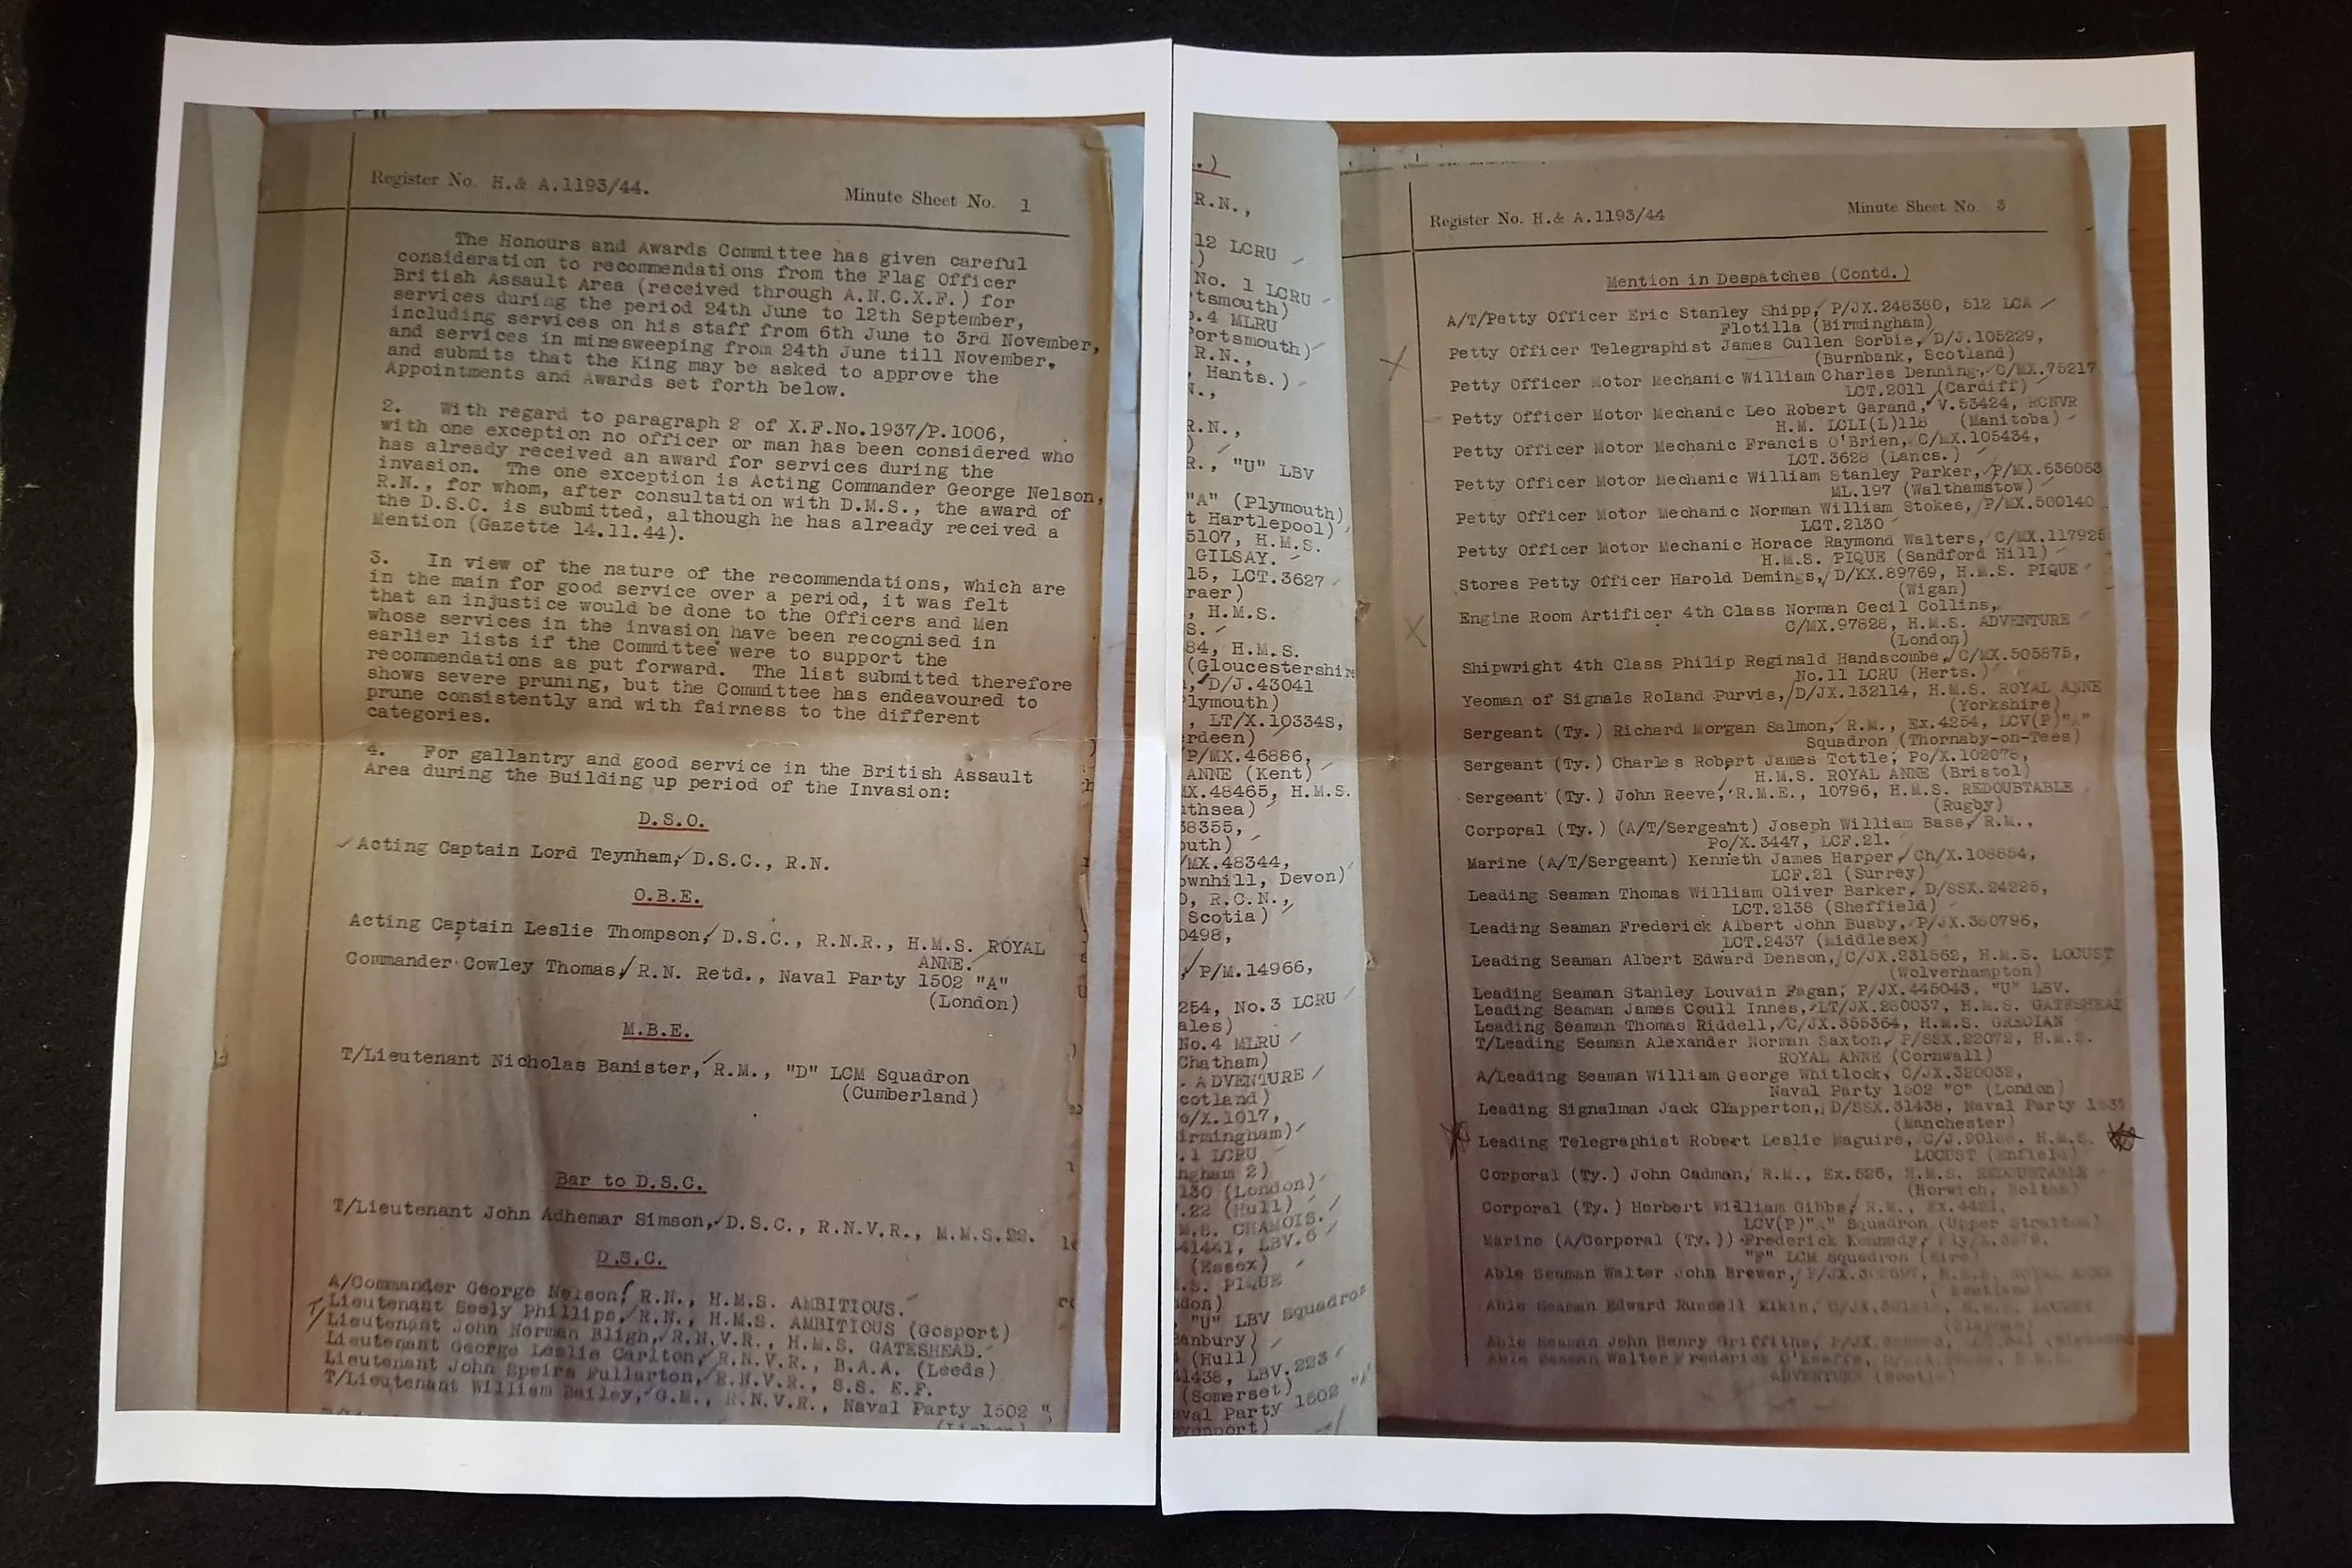 Register No. H.& A.1193/44.
Minute Sheet No. 1
The Honours and Awards Committee has given careful
consideration to recommendations from the Flag Officer
British Assault Area (received through A.N.C.X.F.) for
services during the period 24th June to 12th September,
including services on his staff from 6th June to 3rd November,
and services in minesweeping from 24th June till November,
and submits that the King may be asked to approve the
Appointments and Awards set forth below.
2. With regard to paragraph 2 of X.F.No.1937/P.1006,
with one exception no officer or man has been considered who
has already received an award for services during the
invasion. The one exception is Acting Commander George Nelson,
R.N., for whom, after consultation with D.M.S., the award of
the D.S.C. is submitted, although he has already received a
Mention (Gazette 14.11.44).
3. In view of the nature of the recommendations, which are
in the main for good service over a period, it was felt
that an injustice would be done to the Officers and Men
whose services in the invasion have been recognised in
earlier lists if the Committee were to support the
recommendations as put forward. The list submitted therefore
shows severe pruning, but the Committee has endeavoured to
prune consistently and with fairness to the different
categories.
4. For gallantry and good service in the British Assault
Area during the Building up period of the Invasion:
D.S.O.
Acting Captain Lord Teynham, D.S.C., R.N.
O.B.E.
Acting Captain Leslie Thompson, D.S.C., R.N.R., H.M.S. ROYAL
ANNE.
Commander Cowley Thomas, R.N. Retd., Naval Party 1502 "A"
(London)
M.B.E.
T/Lieutenant Nicholas Banister, R.M., "D" LCM Squadron
(Cumberland)
Bar to D.S.C.
T/Lieutenant John Adhemar Simson, D.S.C., R.N.V.R., M.M.S.
D.S.C.
A/Commander George Nelson, R.N., H.M.S. AMBITIOUS.
Lieutenant Seely Phillips, R.N., H.M.S. AMBITIOUS (Gosport)
T/Lieutenant John Norman Bligh, R.N.V.R., H.M.S. GATESHEAD.
Lieutenant George Leslie Carlton, R.N.V.R., B.A.A. (Leeds)
Lieutenant John Speirs Fullarton, R.N.V.R., S.S. E.F.
T/Lieutenant William Bailey, G.M., R.N.V.R., Naval Party 1502 "
.)
R.N.,
12 LCRU
)
No. 1 LCRU
tsmouth)
.4 MLRU
ortsmouth)
R.N.,
, Hants.)
N.,
R.N.,
)
R., "U" LBV
"A" (Plymouth)
t Hartlepool)
5107, H.M.S.
GILSAY.
15, LCT.3627
raer)
, H.M.S.
S.
84, H.M.S.
(Gloucestershire
, D/J.43041
lymouth)
, LT/X.10334S,
rdeen)
P/MX.46886,
ANNE (Kent)
MX.48465, H.M.S.
thsea)
58355,
outh)
/MX.48344,
ownhill, Devon)
, R.C.N.,
Scotia)
0498,
P/M.14966,
254, No.3 LCRU
ales)
No.4 MLRU
Chatham)
. ADVENTURE
cotland)
o/X.1017,
irmingham)
.1 LCRU
ngham 2)
130 (London)
.22 (Hull)
M.S. CHAMOIS.
41441, LBV.6
(Essex)
.S. PIQUE
don)
"U" LBV Squadron
Banbury)
(Hull)
41438, LBV.223
(Somerset)
aval Party 1502 "A"
vonport)
Register No. H.& A.1193/44
Minute Sheet No. 3
Mention in Despatches (Contd.)
A/T/Petty Officer Eric Stanley Shipp, P/JX.248380, 512 LCA
Flotilla (Birmingham)
Petty Officer Telegraphist James Cullen Sorbie, D/J.105229,
(Burnbank, Scotland)
X
Petty Officer Motor Mechanic William Charles Denning, C/MX.75217
LCT.2011 (Cardiff)
Petty Officer Motor Mechanic Leo Robert Garand, V.53424, RCNVR
H.M. LCLI(L)118 (Manitoba)
Petty Officer Motor Mechanic Francis O'Brien, C/MX.105434,
LCT.3628 (Lancs.)
Petty Officer Motor Mechanic William Stanley Parker, P/MX.636053
ML.197 (Walthamstow)
Petty Officer Motor Mechanic Norman William Stokes, P/MX.500140
LCT.2130
Petty Officer Motor Mechanic Horace Raymond Walters, C/MX.117925
H.M.S. PIQUE (Sandford Hill)
Stores Petty Officer Harold Demings, D/KX.89769, H.M.S. PIQUE
(Wigan)
X
Engine Room Artificer 4th Class Norman Cecil Collins,
C/MX.97828, H.M.S. ADVENTURE
(London)
Shipwright 4th Class Philip Reginald Handscombe, C/MX.505875,
No.11 LCRU (Herts.)
Yeoman of Signals Roland Purvis, D/JX.132114, H.M.S. ROYAL ANNE
(Yorkshire)
Sergeant (Ty.) Richard Morgan Salmon, R.M., Ex.4254, LCV(P)"A"
Squadron (Thornaby-on-Tees)
Sergeant (Ty.) Charles Robert James Tottle, Po/X.102078,
H.M.S. ROYAL ANNE (Bristol)
Sergeant (Ty.) John Reeve, R.M.E., 10796, H.M.S. REDOUBTABLE
(Rugby)
Corporal (Ty.) (A/T/Sergeant) Joseph William Bass, R.M.,
Po/X.3447, LCF.21.
Marine (A/T/Sergeant) Kenneth James Harper, Ch/X.108854,
LCF.21 (Surrey)
Leading Seaman Thomas William Oliver Barker, D/SSX.24225,
LCT.2138 (Sheffield)
Leading Seaman Frederick Albert John Busby, P/JX.360796,
LCT.2437 (Middlesex)
Leading Seaman Albert Edward Denson, C/JX.231562, H.M.S. LOCUST
(Wolverhampton)
Leading Seaman Stanley Louvain Fagan, P/JX.445043, "U" LBV.
Leading Seaman James Coull Innes, LT/JX.280037, H.M.S. GATESHEAD
Leading Seaman Thomas Riddell, C/JX.355364, H.M.S. GRECIAN
T/Leading Seaman Alexander Norman Saxton, P/SSX.22072, H.M.S.
ROYAL ANNE (Cornwall)
A/Leading Seaman William George Whitlock, C/JX.320032,
Naval Party 1502 "C" (London)
Leading Signalman Jack Clapperton, D/SSX.31438, Naval Party
(Manchester)
Leading Telegraphist Robert Leslie Maguire, H.M.S.
LOCUST (Enfield)
Corporal (Ty.) John Cadman, R.M., Ex.526, H.M.S. REDOUBTABLE
(Horwich, Bolton)
Corporal (Ty.) Herbert William Gibbs, R.M.,
LCV(P)"A" Squadron (Upper Stratton)
Marine (A/Corporal (Ty.)) Frederick Kennedy,
LCM Squadron (Eire)
Able Seaman Walter John Brewer,
Able Seaman Edward Russell Elkin,
Able Seaman John Henry Griffiths,
Able Seaman Walter Frederick O'Keeffe,
ADVENTURE (Bootle)